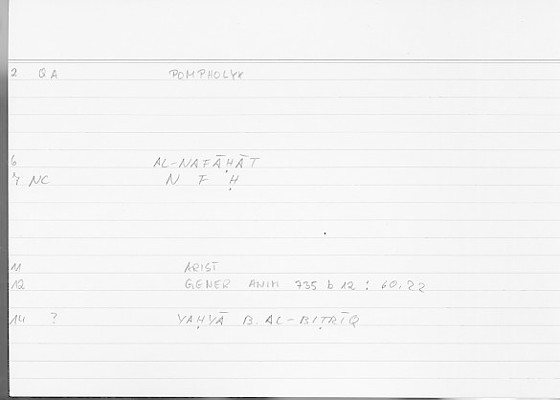 2 QA POMPHOLYX
6 AL-NAFĀḤĀT
7 NC N F Ḥ
11 ARIST
12 GENER ANIM 735 b 12 : 60,22
14 ? YAḤYĀ B. AL-BIṬRĪQ